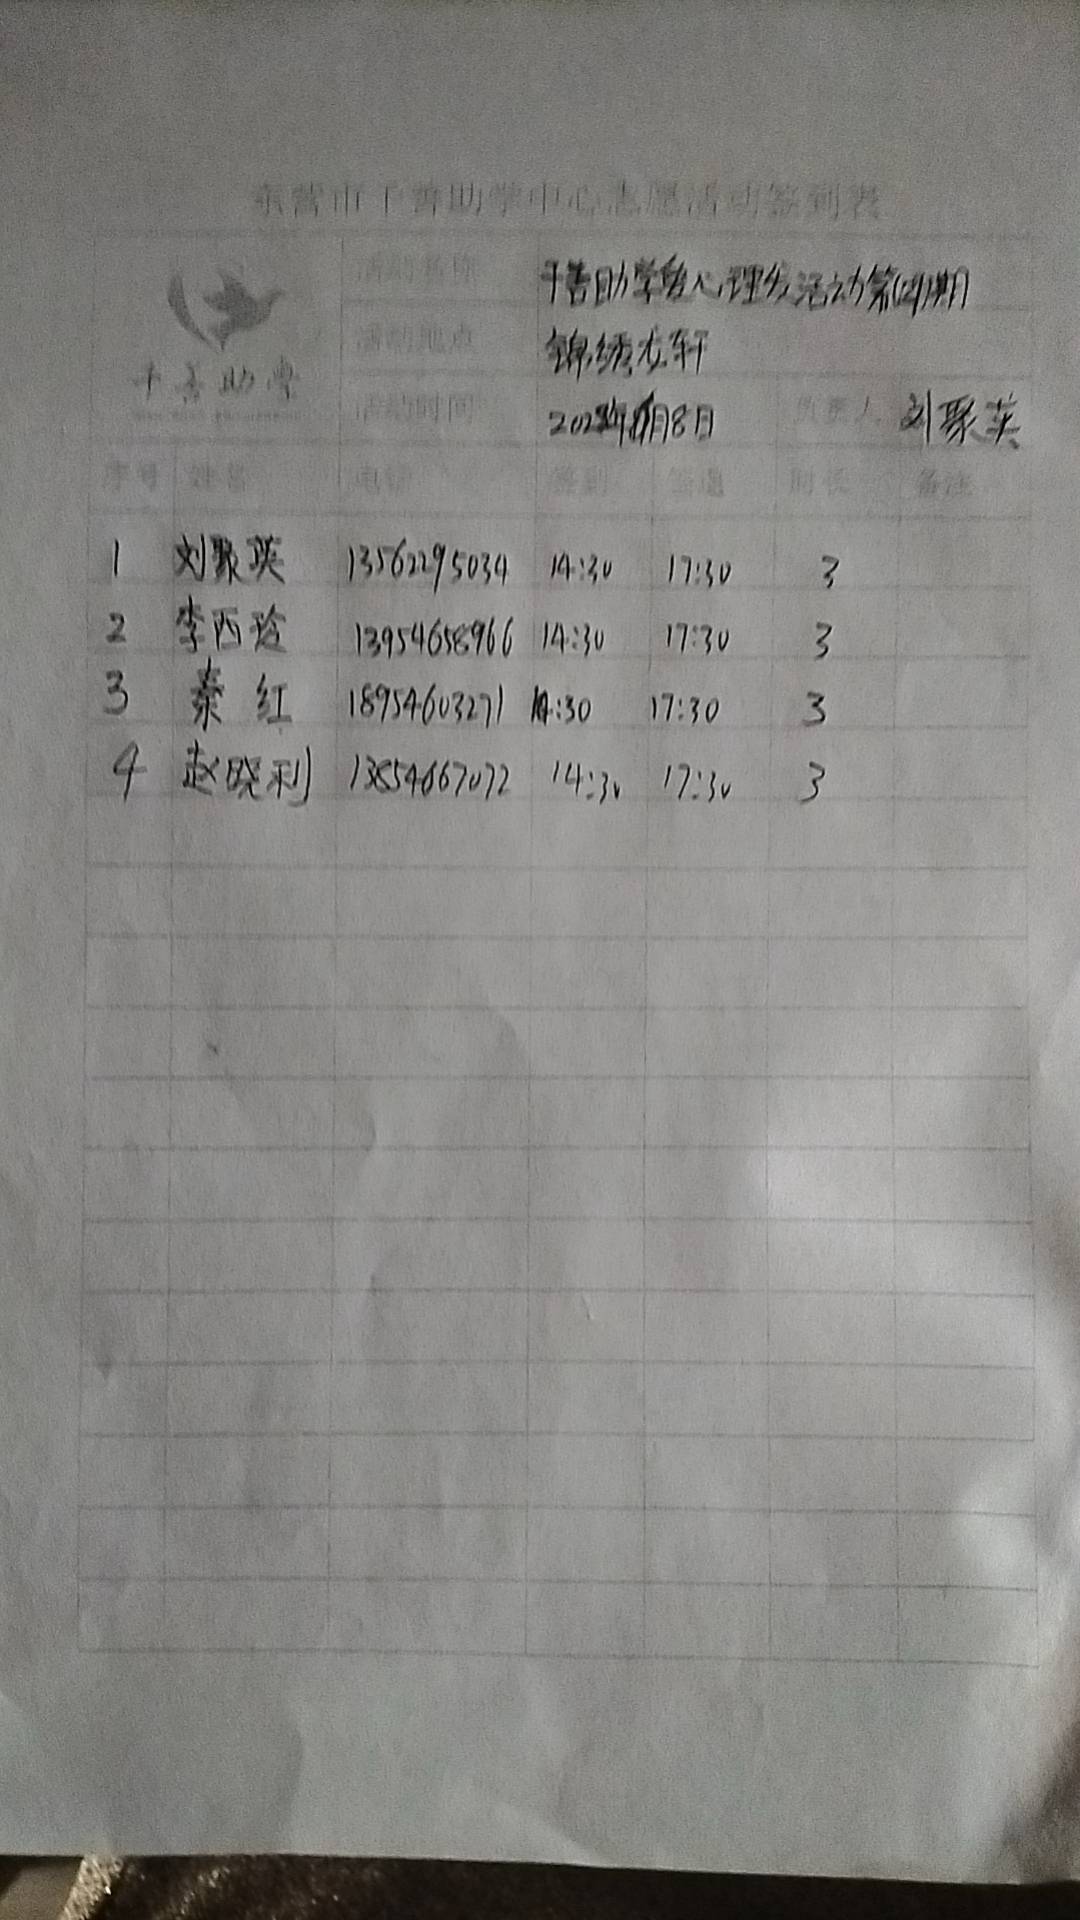 东营市千善助学中心志愿活动签到表
千善助学
活动名称 千善助学 心理 活动第 期
活动地点 锦绣龙轩
活动时间 8日 负责人 刘聚英
序号 姓名 电话 签到 签退 时长 备注
1 刘聚英 13562295034 14:30 17:30 3
2 李西玲 13954658966 14:30 17:30 3
3 秦红 18954603271 14:30 17:30 3
4 赵晓利 13854667072 14:30 17:30 3